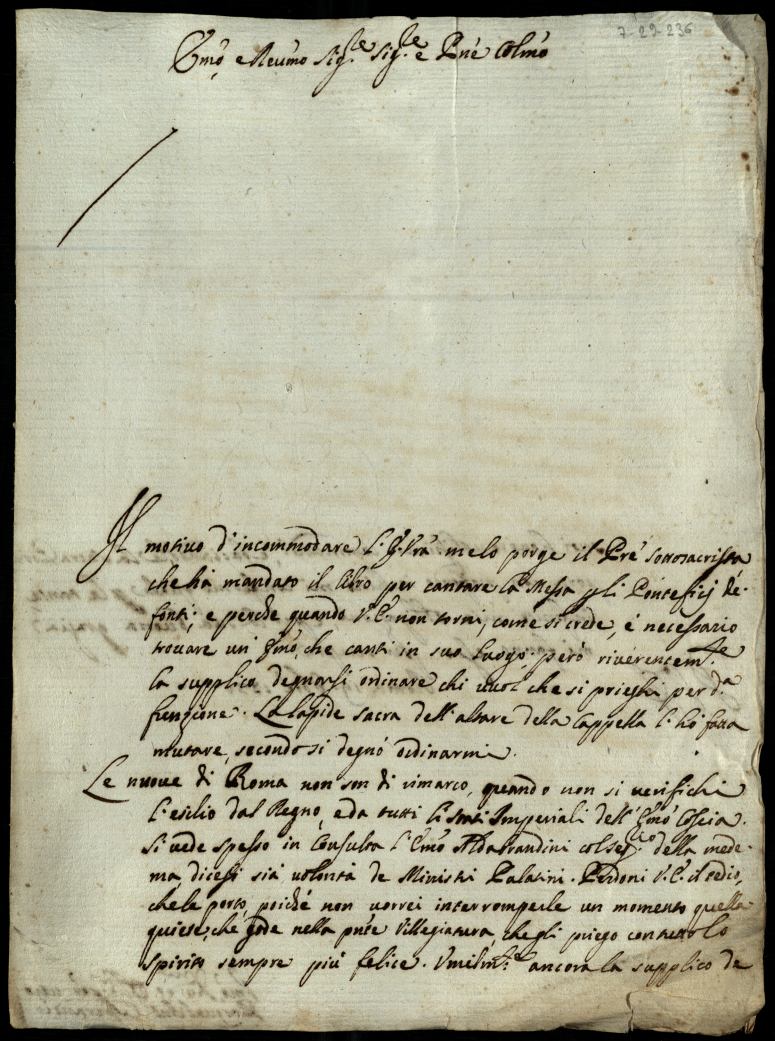 7-29-236
Emo, e Reumo Sig.re Sig.re e Prne Colmo
Il motiuo d'incommodare l'E. Vra melo porge il Pre sottosacrista
che hà mandato il libro per cantare la Messa p gli Pontefici de-
fonti; e perche quando V.E. non torni, come si crede, é necessario
trouare un' Emo, che canti in suo luogo; però riuerentem.te
la supplico degnarsi ordinare chi uuol che si prieghi per d.a
funzione. La lapide sacra dell'altare della Cappella l'hò fatta
mutare, secondo si degnò ordinarmi.
Le nuoue di Roma non son di rimarco, quando non si uerifichi
l'esilio dal Regno, e da tutti li Stati Imperiali dell'Emo Coscia.
Si uede spesso in Consulta l'Emo Aldabrandini col Seg.rio della mede-
ma, dicesi sia uolontà de Ministri Palatini. Perdoni V.E. il tedio,
che le porto, poiché non uorrei interromperle un momento quella
quiete, che gode nella pnte Villegiatura, che gli priego con tutto lo
spirito sempre più felice. Vmilm.te ancora la supplico de